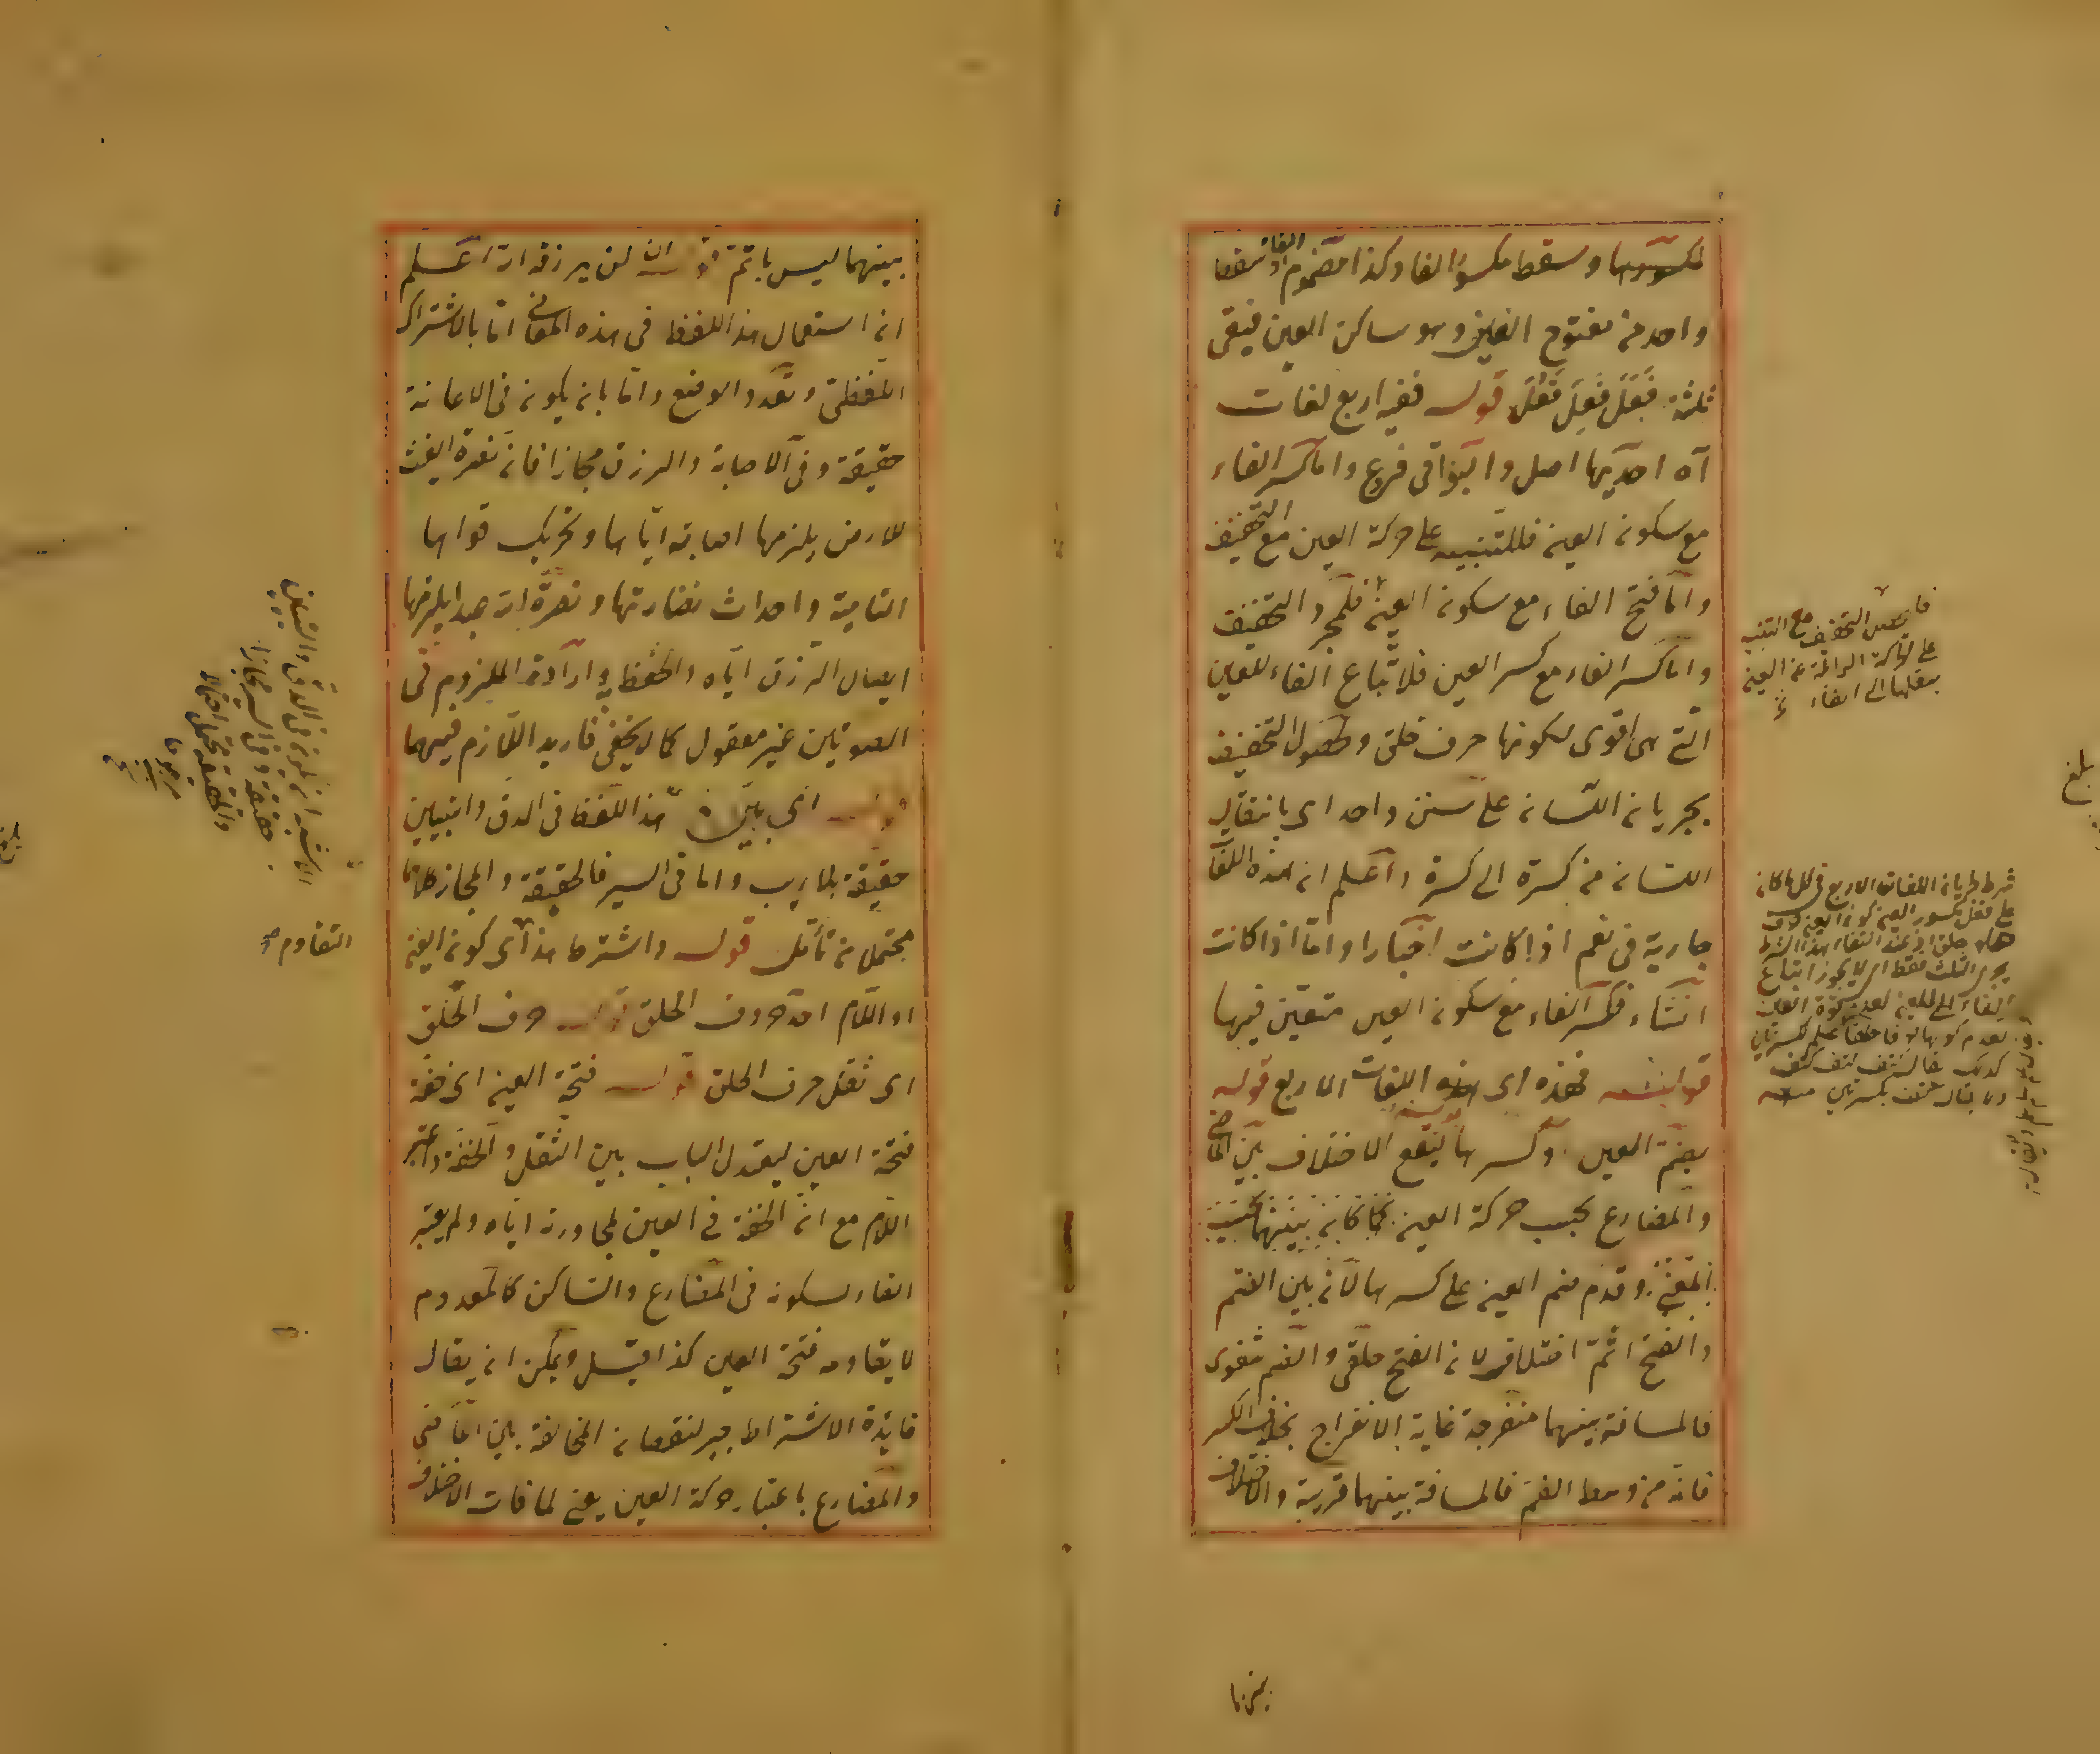 لمكسورها وسقط مكسور الفاء وكذا مضموم الفاء سقط
واحد من مفتوح الفاء وهو ساكن العين فبقى
ثلثة فَعَلَ فَعِلَ فَعُلَ قوله ففيه اربع لغات
آه احديها اصل والبواقى فرع واما كسر الفاء
مع سكون العين فللتنبيه على حركة العين مع التخفيف
واما فتح الفاء مع سكون العين فلمجرد التخفيف
واما كسر الفاء مع كسر العين فلاتباع الفاء للعين
التى هى اقوى لكونها حرف حلق ولحصول التخفيف
بجريان اللسان على سنن واحد اى بانتقال
اللسان من كسرة الى كسرة واعلم ان هذه اللغات
جارية فى نعم اذا كانت اخبارا واما اذا كانت
انشاء فكسر الفاء مع سكون العين متعين فيها
قوله فهذه اى هذه اللغات الاربع قوله
بضم العين وكسرها ليقع الاختلاف بين الماضى
والمضارع بحسب حركة العين كما كان بينهما بحسب
المعنى وقدم ضم العين على كسرها لان بين الضم
والفتح اتم اختلاف لان الفتح حلقى والضم شفوى
فالمسافة بينهما منفرجة غاية الانفراج بخلاف الكسر
فانه من وسط الفم فالمسافة بينهما قريبة والاختلاف
بينهما
فا يحصل التخفيف مع التنبيه
على الحركة الزائلة عن العين
بنقلها الى الفاء
شرط جريان اللغات الاربع فى كل ما كان
على فعل مكسور العين كون العين حرف
حلق اذ عند انتفاء هذا الشرط
يجوز الثلث فقط اى لا يجوز اتباع
الفاء للعين لعدم قوة العين
بلغ
بينهما ليس باتم قوله ان لن يرزقه الله اعلم
ان استعمال هذا اللفظ فى هذه المعانى اما بالاشتراك
اللفظى وتعدد الوضع واما بان يكون فى الاعانة
حقيقة وفى الاصابة والرزق مجازا فان نصرة الغيث
للارض يلزمها اصابته اياها وتحريك قواها
النامية واحداث نضارتها ونصرة الله عبدا يلزمها
ايصال الرزق اياه والحفظ به وارادة الملزوم فى
الصورتين غير معقول كما لا يخفى فاريد اللازم فيهما
قوله اى بين هذا اللفظ فى الدق والتبيين
حقيقة بلا ريب واما فى السير فالحقيقة والمجاز كلاهما
محتملان تأمل قوله واشترط هذا اى كون العين
او اللام احد حروف الحلق قوله حرف الحلق
اى ثقل حرف الحلق قوله فتحة العين اى خفة
فتحة العين ليعتدل الباب بين الثقل والخفة واعتبر
اللام مع ان الخفة فى العين لمجاورته اياه ولم يعتبر
الفاء لسكونه فى المضارع والساكن كالمعدوم
لا يقاوم فتحة العين كذا قيل ويمكن ان يقال
فائدة الاشتراط جبر لنقصان المخالفة بين الماضى
والمضارع باعتبار حركة العين يعنى لما فات الاختلاف
التقاوم صح